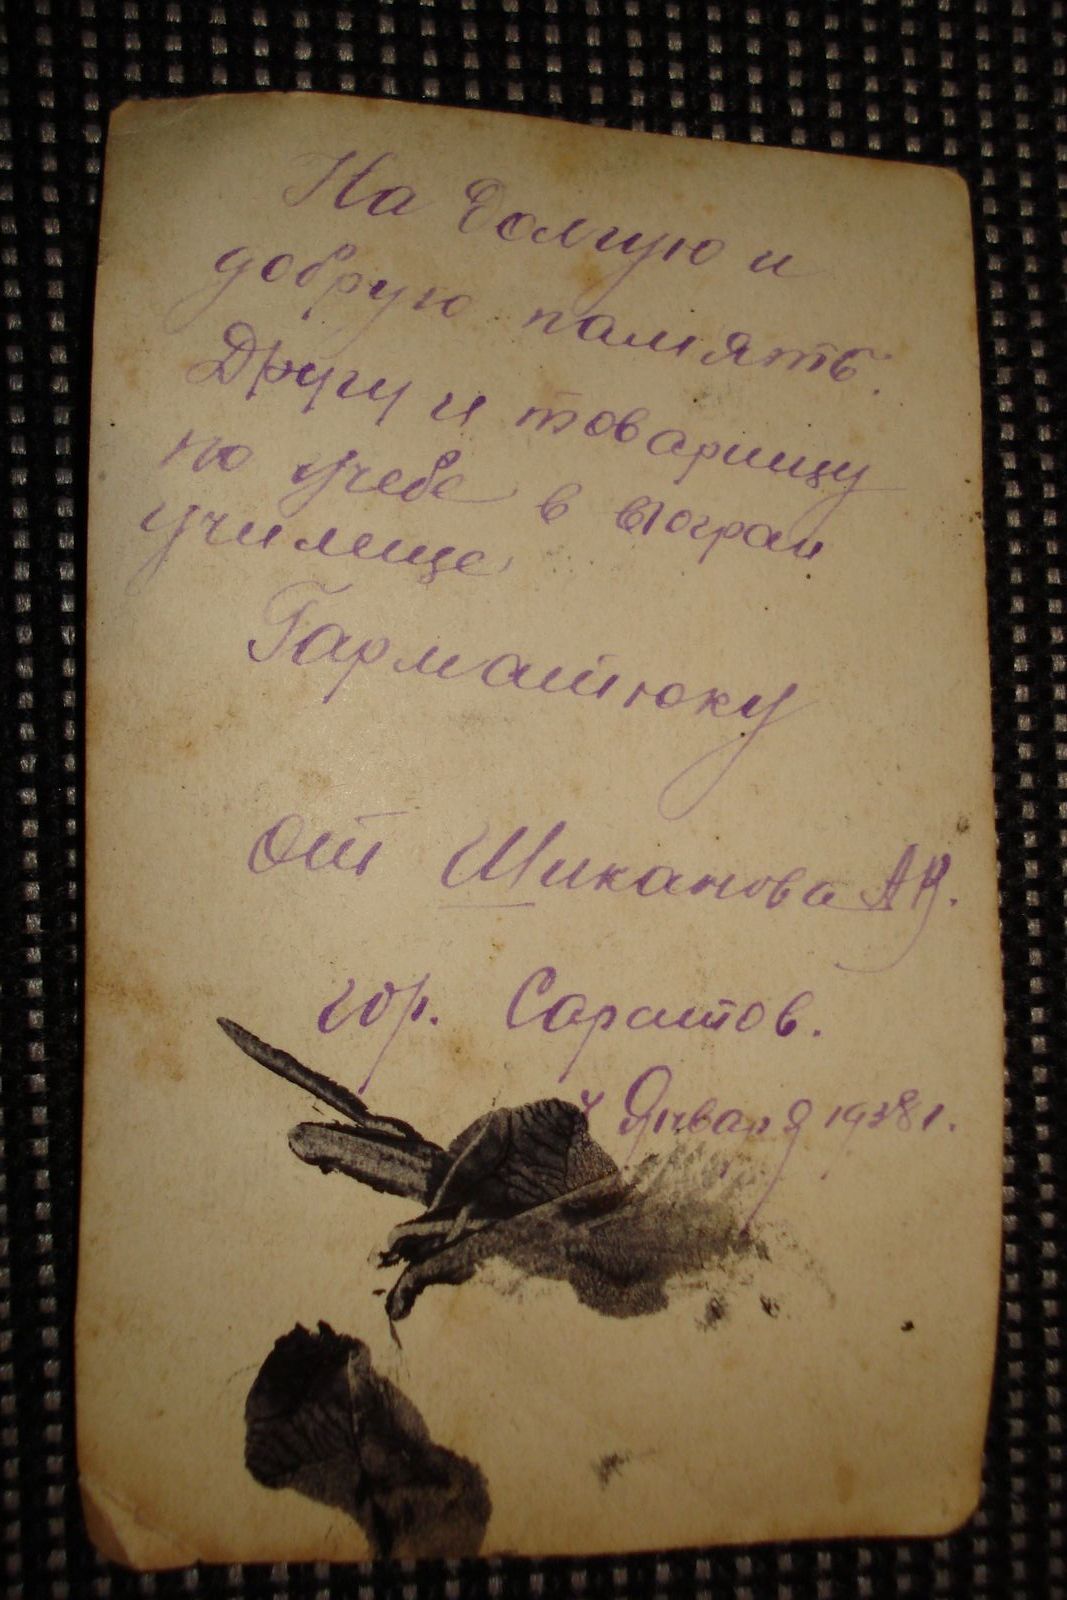 На долгую и
добрую память.
Другу и товарищу
по учебе в
училище
Гарматюку
от Шиканова АВ.
гор. Саратов.
Января 1938 г.